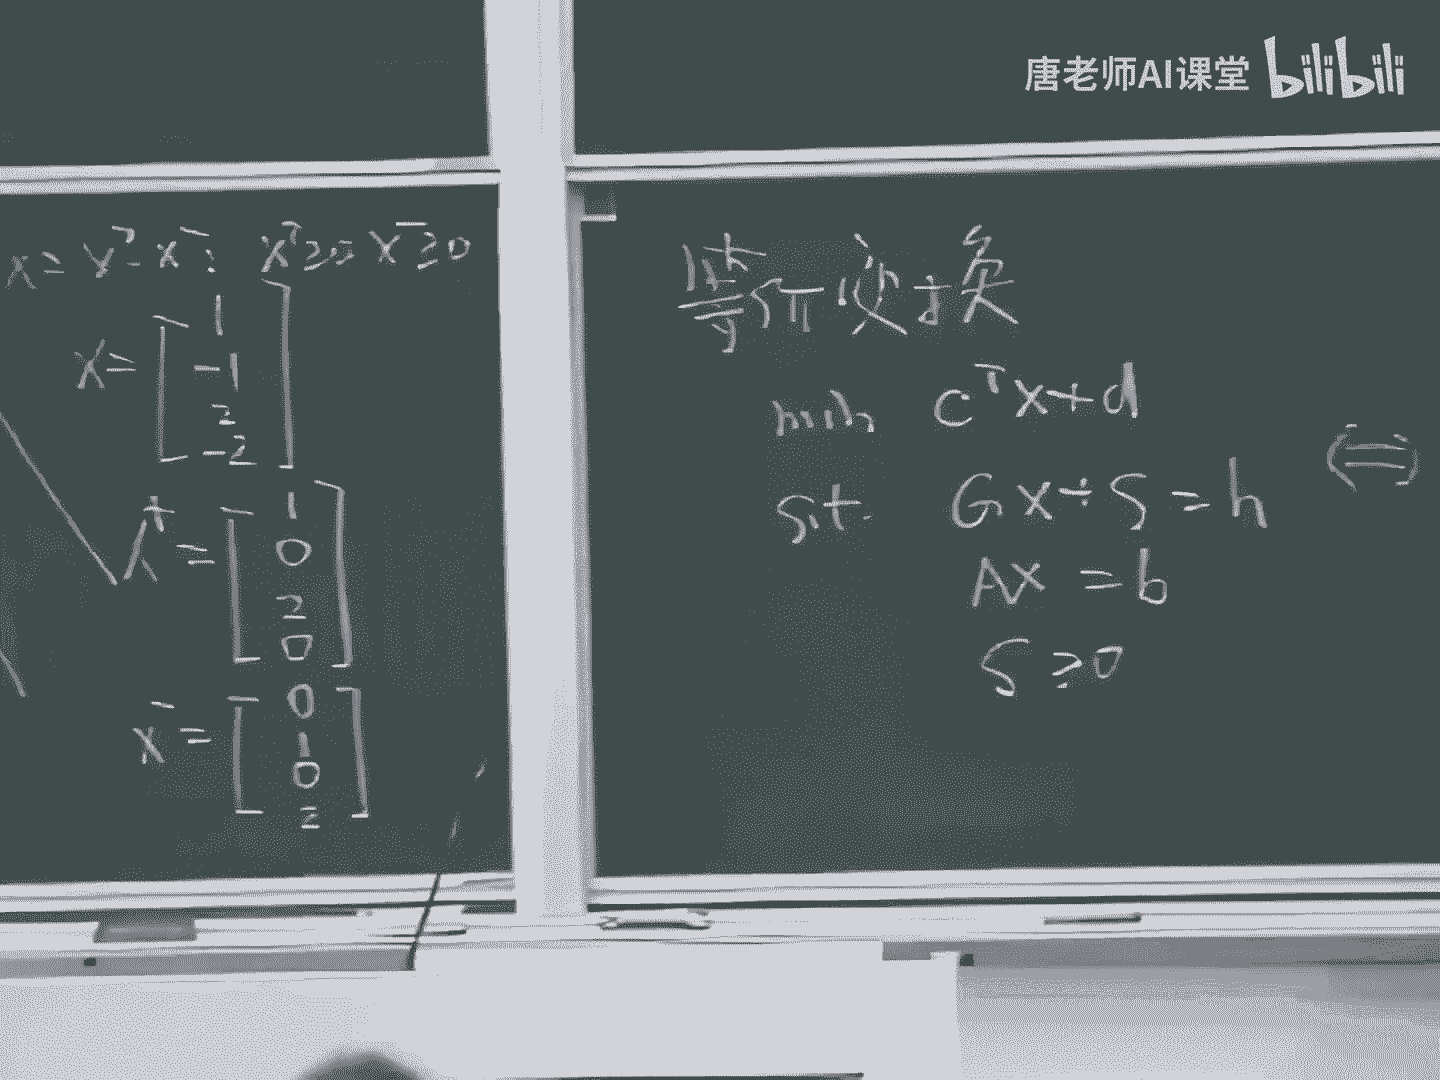 唐老师AI课堂 bilibili
x = x⁺ - x⁻; x⁺ ≥ 0, x⁻ ≥ 0
x = [1
-1
2
-2]
x⁺ = [1
0
2
0]
x⁻ = [0
1
0
2]
等价变换
min cᵀx+d
s.t. Gx+S = h
Ax = b
S ≥ 0
⟺